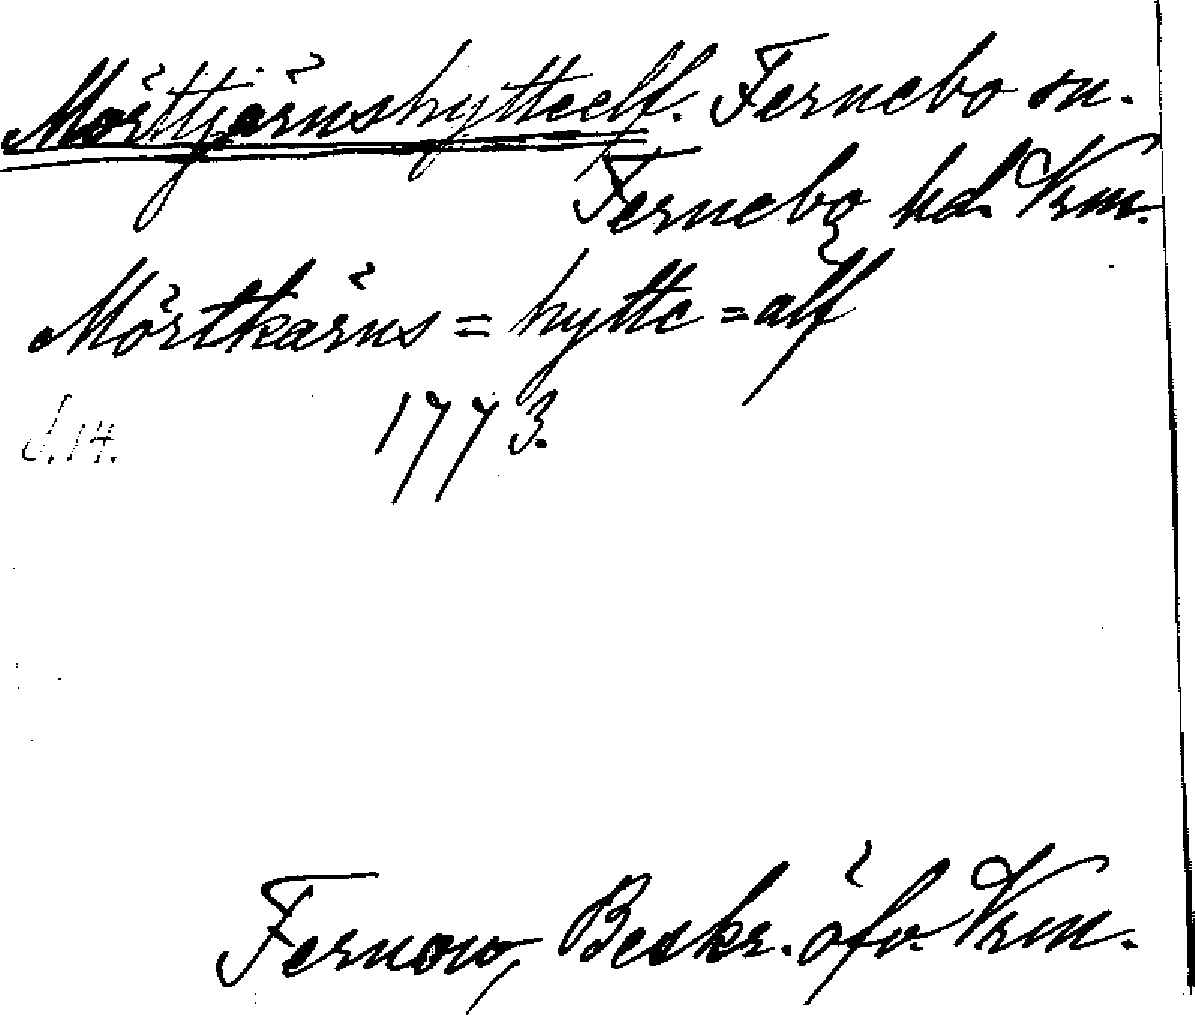 Mörttjärnshytteelf. Fernebo sn.
Fernebo hd. Vrm.
Mörtkärns=hytte=älf
1773.
d. 14.
Fernow, Beskr. öfv. Vrm.